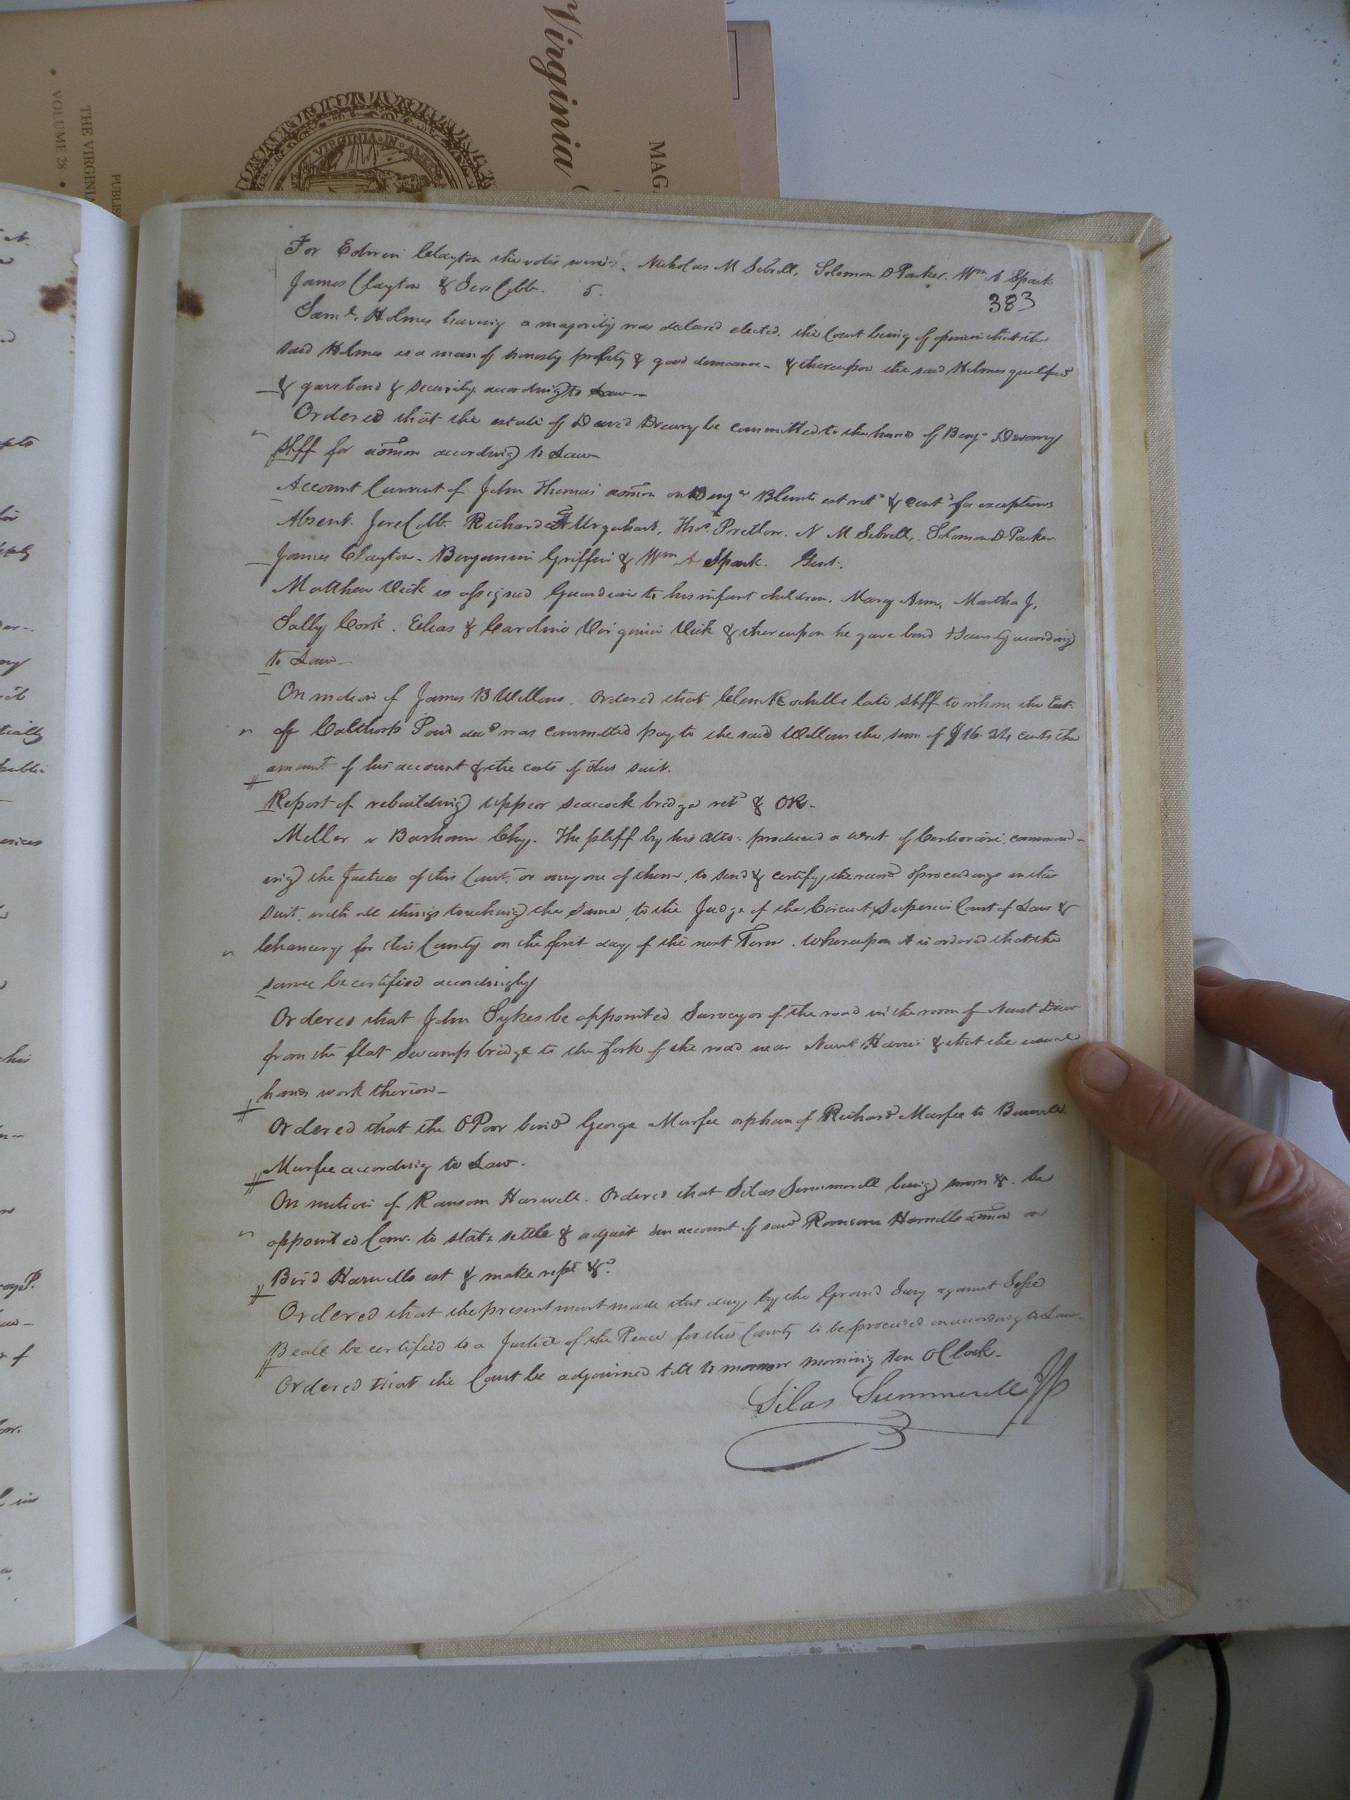 Virginia
MAG
VIRGINIA IN AME
PUBLIS
THE VIRGINIA
• VOLUME 28 •
For Edwin Clayton the votes were. Nicholas M Sebrell, Solomon D Parker. Wm A Spark
James Clayton & Jere Cobb. 5.
383
Saml. Holmes having a majority was declared elected. the Court being of opinion that the
said Holmes is a man of honesty probity & good demeanor & thereupon the said Holmes qualified
& gave bond & security according to Law
Ordered that the estate of David Drewry be committed to the hands of Benj. Drewry
shff for admon according to Law
Account Current of John Thomas admon on Benjn Blunts est retd & contd for exceptions
Absent. Jere Cobb Richard A Urquhart, Thos. Pretlow. N M Sebrell, Solomon D Parker
James Clayton. Benjamin Griffin & Wm A Spark. Gent.
Matthew Vick is assigned Guardian to his infant children, Mary Ann, Martha J,
Sally Cork. Elias & Caroline Virginia Vick & thereupon he gave bond & Security according
to Law
On motion of James B Wellons. Ordered that Clem Rochelle late Shff to whom the Est
of Calthorp Pond decd was committed pay to the said Wellons the sum of $16.24 cents the
amount of his account & the costs of this suit.
Report of rebuilding upper seacock bridge retd & OR
Meller v Barham Chy. The pltff by his atto. produced a writ of Certiorari command-
ing the Justices of this Court, or any one of them, to send & certify the record & proceedings in this
suit, with all things touching the same, to the Judge of the Circuit Superior Court of Law &
Chancery for this County on the first day of the next Term. Whereupon it is ordered that the
same be certified accordingly
Ordered that John Sykes be appointed Surveyor of the road in the room of Newit
from the flat swamp bridge to the fork of the road near Newit Harris & that the usual
hands work thereon
Ordered that the OPoor bind George Murfee orphan of Richard Murfee to
Murfee according to Law.
On motion of Ransom Harwell. Ordered that Silas Summerell being sworn &. be
appointed Com. to state settle & adjust an account of said Ransom Harwells admon on
Bird Harwells est & make rept &c
Ordered that the presentment made this day by the Grand Jury against
Beale be certified to a Justice of the Peace for this County to be proceeded on according to Law.
Ordered that the Court be adjourned till to morrow morning ten O'Clock.
Silas Summerell JP